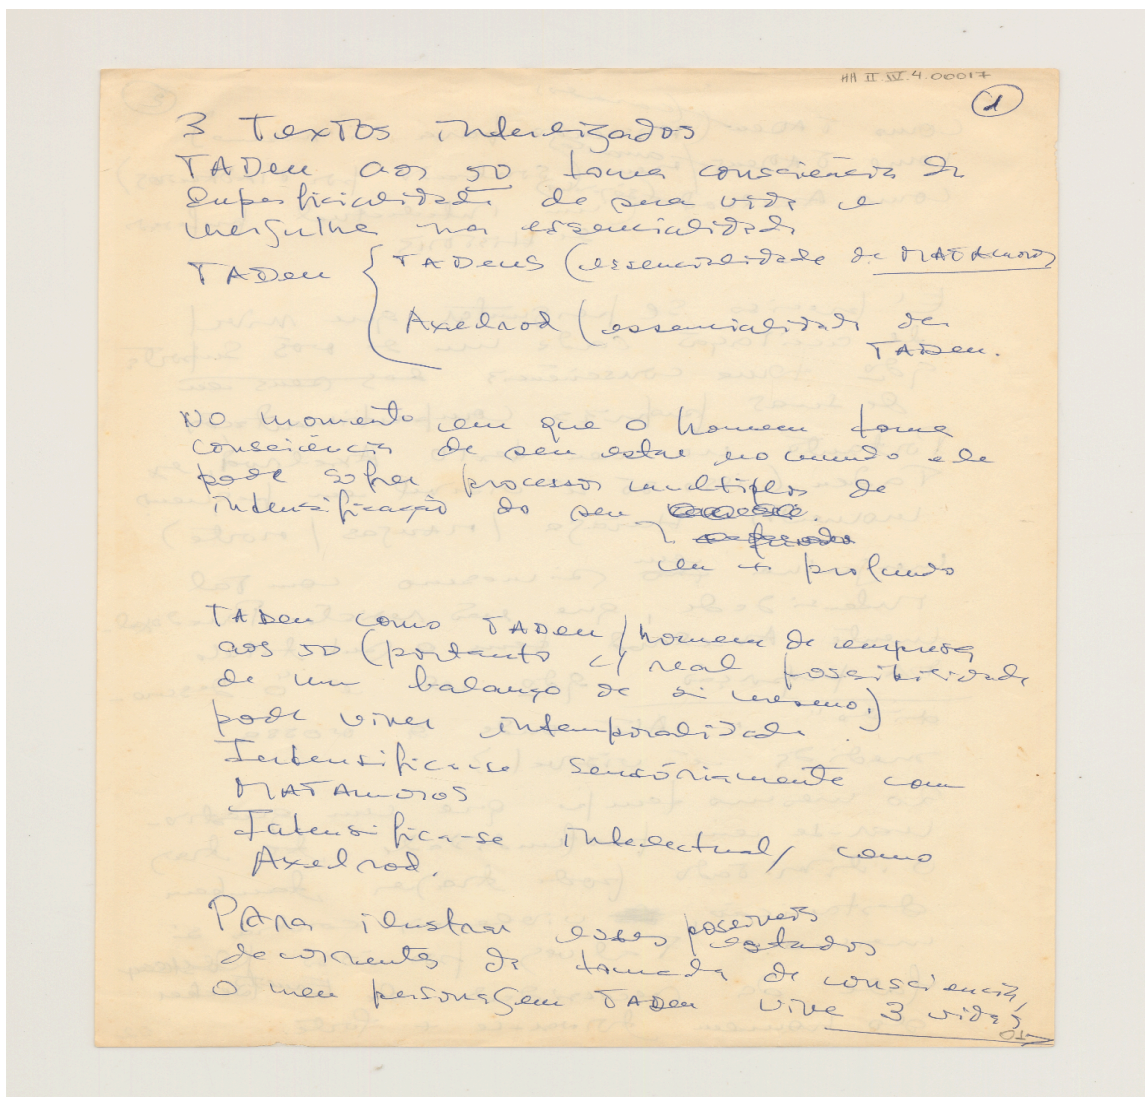 HH II IV.4.00017
1
3 Textos interligados
TADeu aos 50 toma consciência da
superficialidade de sua vida e
mergulha na essencialidade
TADeu { TADeus (essencialidade de MATAmoros
Axelrod (essencialidade de
TADeu.
No momento em que o homem toma
consciência de seu estar no mundo ele
pode sofrer processos multiplos de
intensificação do seu
eu + profundo
TADeu como TADeu / homem de empresa
aos 50 (portanto c/ real possibilidade
de um balanço de si mesmo.)
pode viver intemporalidade.
Intensifica-se sensóriamente com
MATAmoros
Intensifica-se intelectual/ como
Axelrod.
PARA ilustrar esses possiveis
estados
decorrentes da tomada de consciencia,
O meu personagem TADeu vive 3 vidas